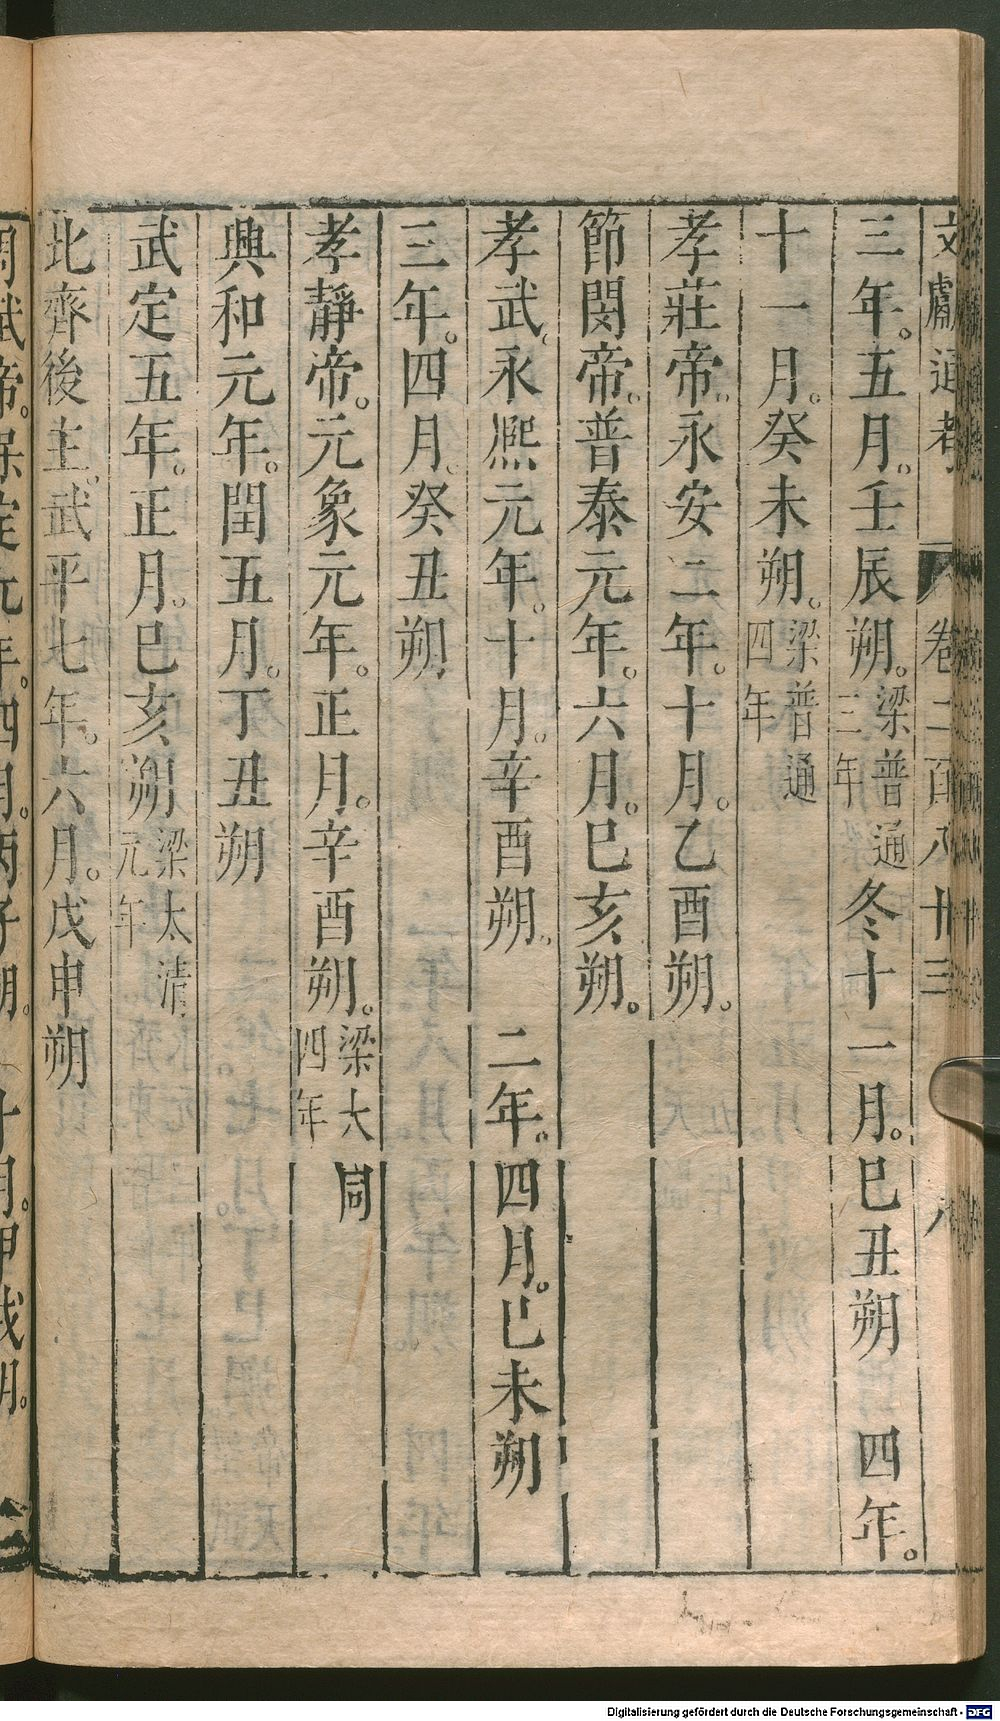 文獻通考 卷二百八十三 八
三年。五月。壬辰朔。梁普通三年 冬十一月。巳丑朔 四年。
十一月。癸未朔。梁普通四年
孝莊帝。永安二年。十月。乙酉朔。
節閔帝。普泰元年。六月。巳亥朔。
孝武。永熙元年。十月。辛酉朔。 二年。四月。巳未朔
三年。四月。癸丑朔
孝靜帝。元象元年。正月。辛酉朔。梁大同四年
興和元年。閏五月。丁丑朔
武定五年。正月。巳亥朔梁太清元年
北齊後主。武平七年。六月。戊申朔
周武帝。保定元年。四月。丙子朔。十月。甲戌朔。
Digitalisierung gefördert durch die Deutsche Forschungsgemeinschaft - DFG